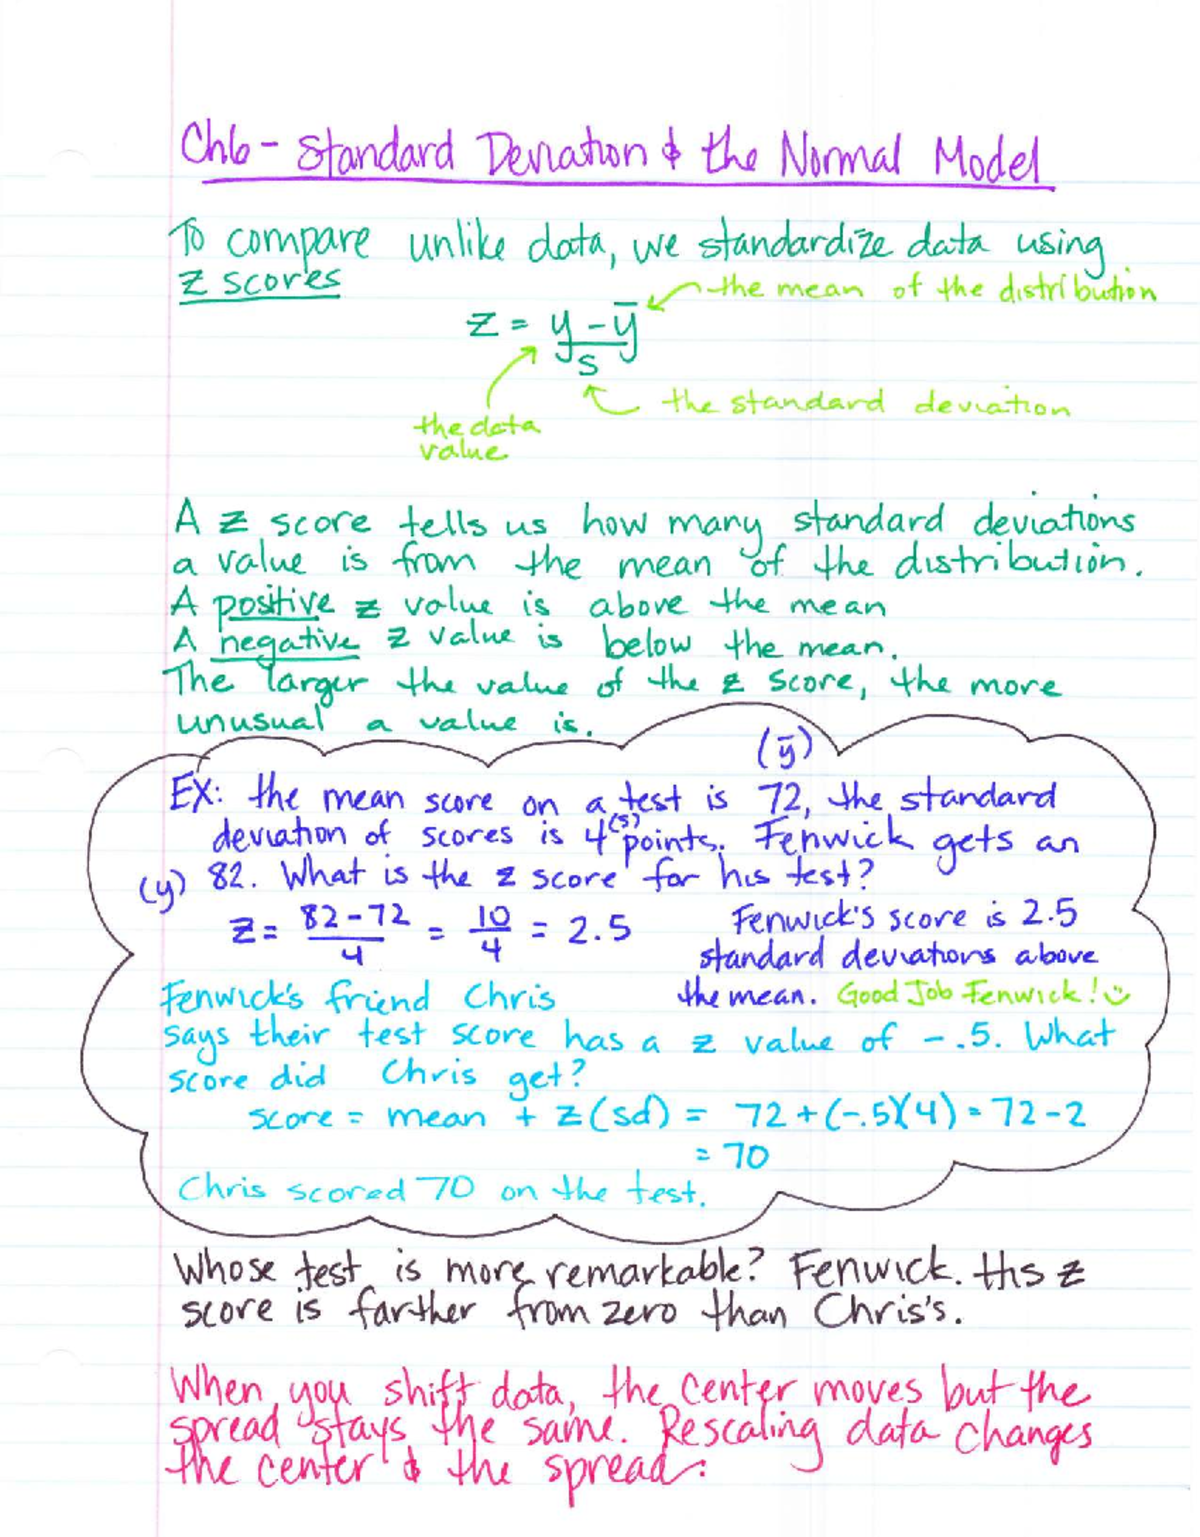 Ch6 - Standard Deviation & the Normal Model
To compare unlike data, we standardize data using
z scores
the mean of the distribution
z = y - ȳ
s
the standard deviation
the data
value
A z score tells us how many standard deviations
a value is from the mean of the distribution.
A positive z value is above the mean
A negative z value is below the mean.
The larger the value of the z score, the more
unusual a value is.
(ȳ)
EX: the mean score on a test is 72, the standard
deviation of scores is 4 (s) points. Fenwick gets an
(y) 82. What is the z score for his test?
z = 82-72 / 4 = 10 / 4 = 2.5
Fenwick's score is 2.5
standard deviations above
the mean. Good Job Fenwick! ☺
Fenwick's friend Chris
says their test score has a z value of -.5. What
score did Chris get?
score = mean + z(sd) = 72 + (-.5)(4) = 72 - 2
= 70
Chris scored 70 on the test.
Whose test is more remarkable? Fenwick. His z
score is farther from zero than Chris's.
When you shift data, the center moves but the
spread stays the same. Rescaling data changes
the center & the spread.